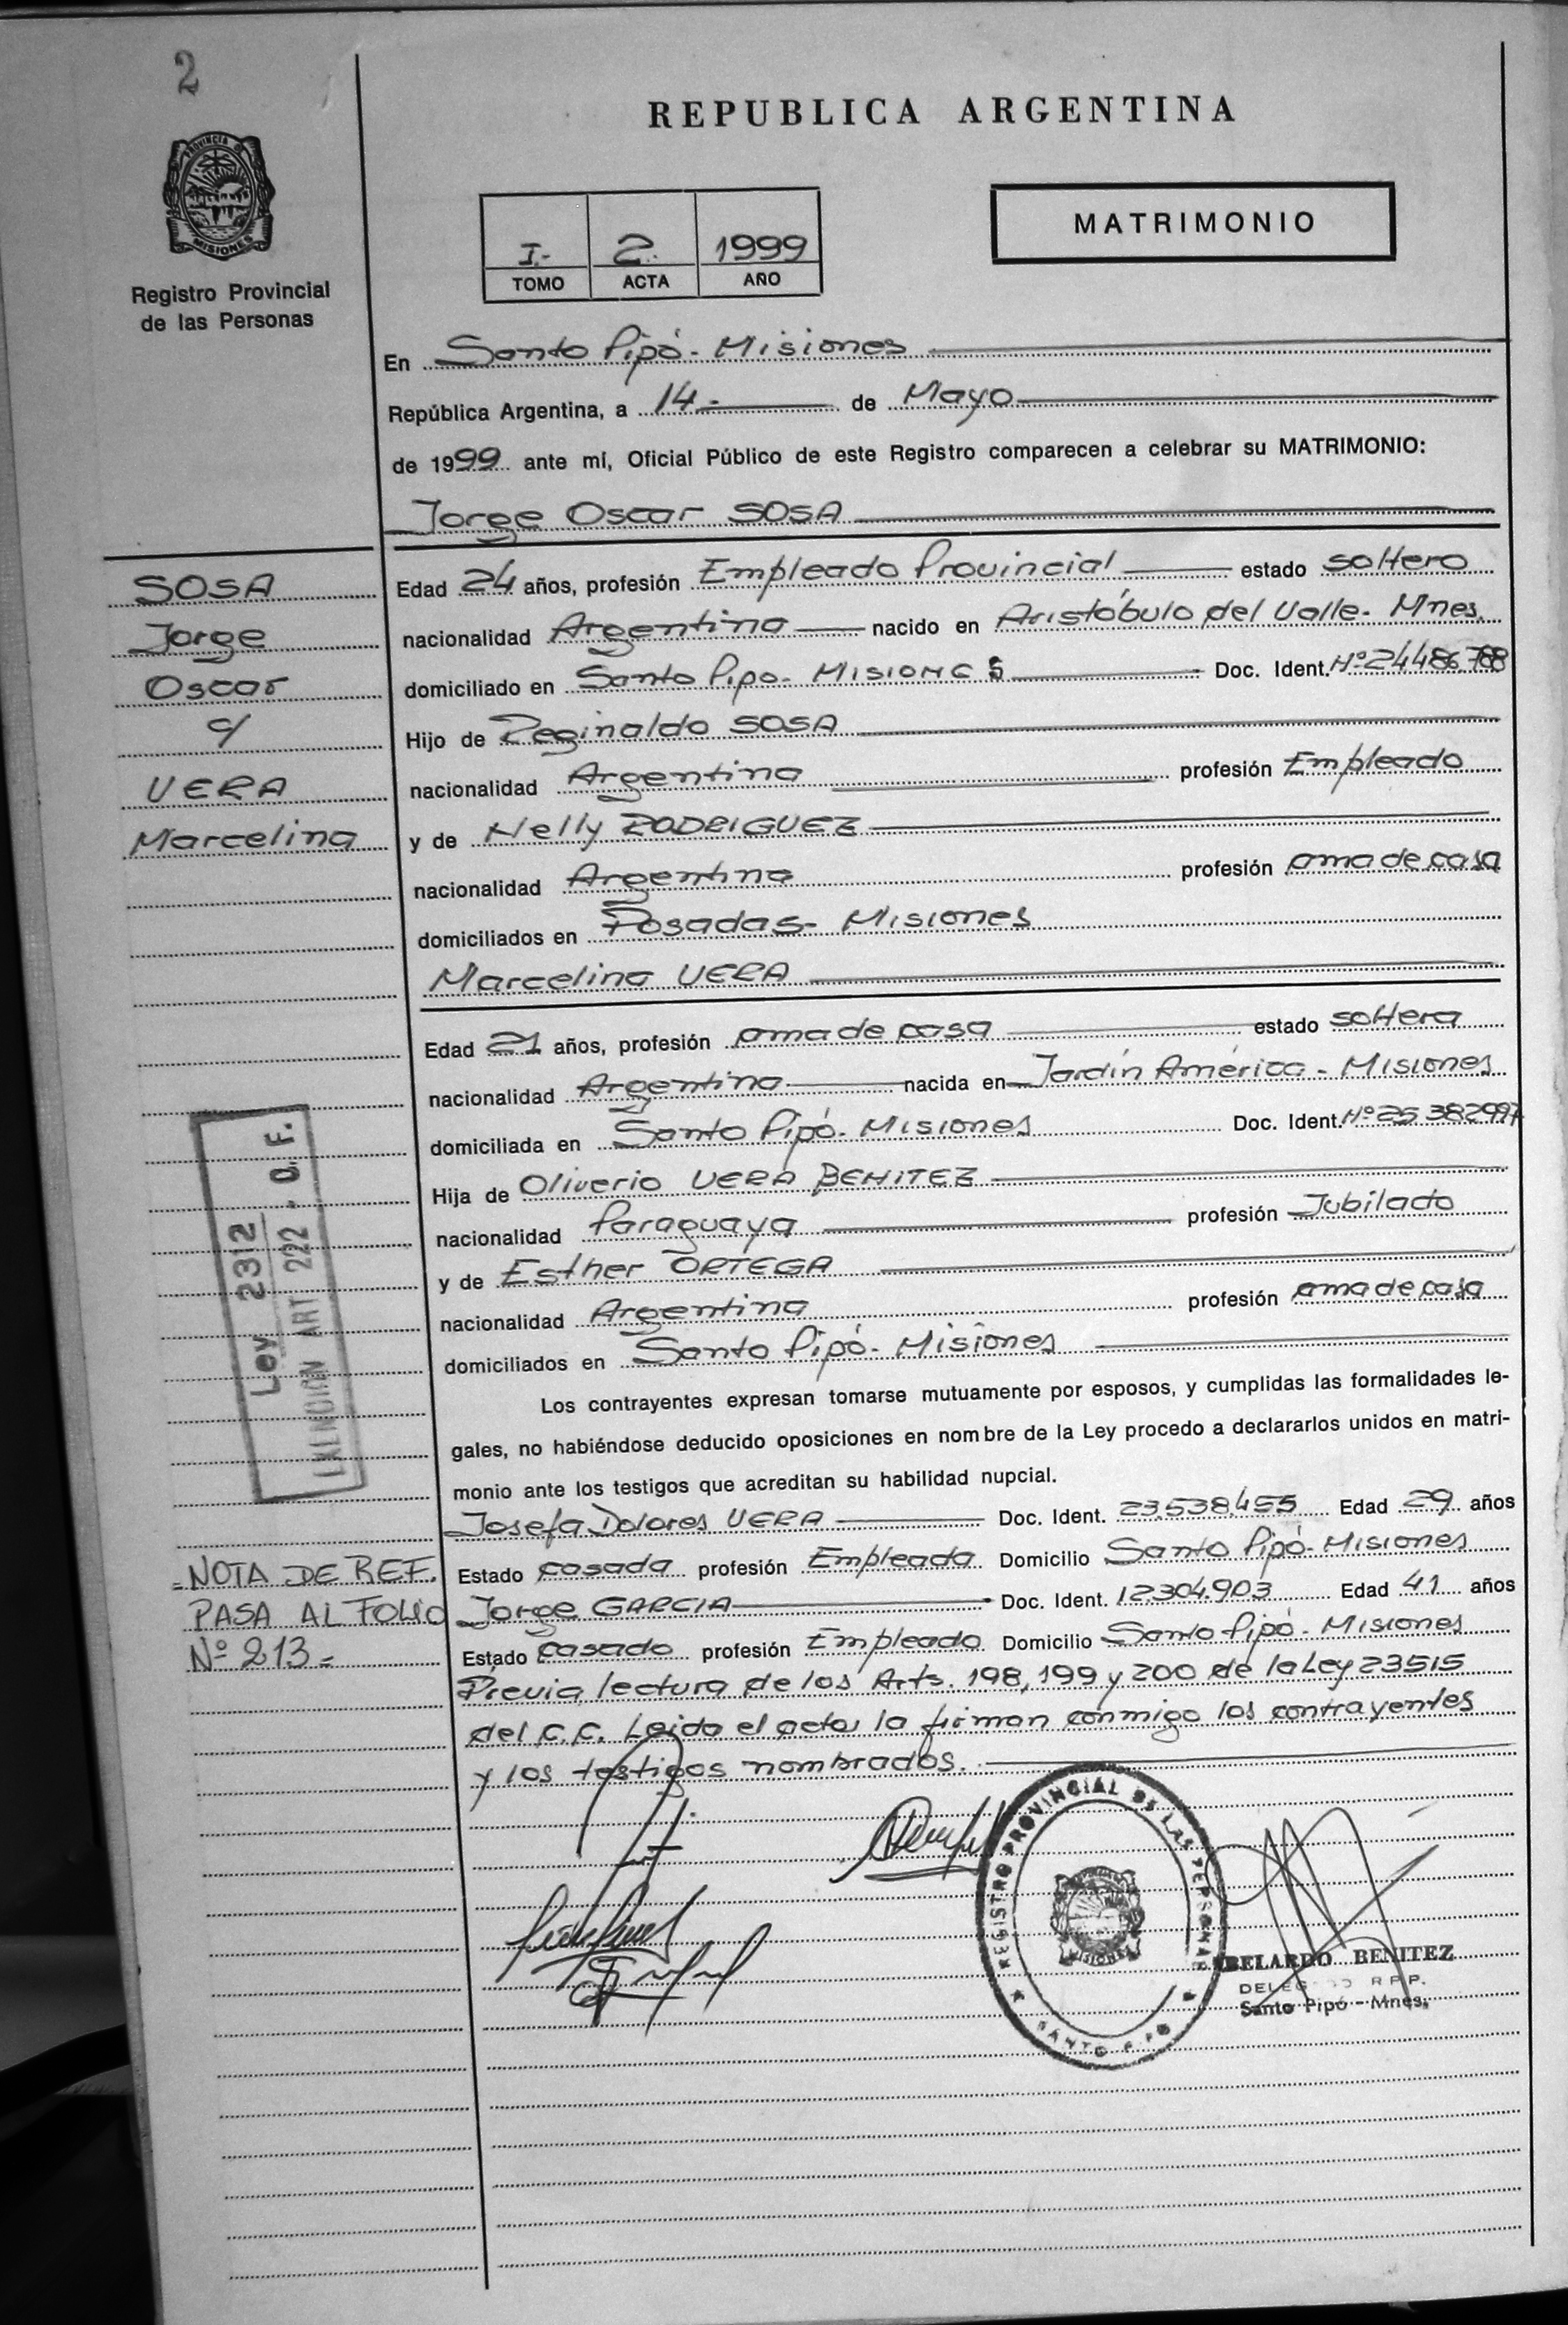 2
REPUBLICA ARGENTINA
PROVINCIA DE
MISIONES
Registro Provincial
de las Personas
I.- 2. 1999
TOMO ACTA AÑO
MATRIMONIO
En Santo Pipó - Misiones
República Argentina, a 14.- de Mayo
de 1999 ante mí, Oficial Público de este Registro comparecen a celebrar su MATRIMONIO:
Jorge Oscar SOSA
SOSA
Jorge
Oscar
c/
VERA
Marcelina
Edad 24 años, profesión Empleado Provincial estado soltero
nacionalidad Argentina nacido en Aristóbulo del Valle - Mnes.
domiciliado en Santo Pipo - MISIONES Doc. Ident. Nº 24486788
Hijo de Reginaldo SOSA
nacionalidad Argentina profesión Empleado
y de Nelly RODRIGUEZ
nacionalidad Argentina profesión ama de casa
domiciliados en Posadas - Misiones
Marcelina VERA
Edad 21 años, profesión ama de casa estado soltera
nacionalidad Argentina nacida en Jardín América - Misiones
domiciliada en Santo Pipó - Misiones Doc. Ident. Nº 25.382997
Hija de Oliverio VERA BENITEZ
nacionalidad Paraguaya profesión Jubilado
y de Esther ORTEGA
nacionalidad Argentina profesión ama de casa
domiciliados en Santo Pipó - Misiones
Ley 2312
ART 222 - O.F.
Los contrayentes expresan tomarse mutuamente por esposos, y cumplidas las formalidades le-
gales, no habiéndose deducido oposiciones en nombre de la Ley procedo a declararlos unidos en matri-
monio ante los testigos que acreditan su habilidad nupcial.
Josefa Dolores VERA Doc. Ident. 23.538.455 Edad 29 años
Estado casada profesión Empleada Domicilio Santo Pipó - Misiones
Jorge GARCIA Doc. Ident. 12.304.903 Edad 41 años
Estado casado profesión Empleado Domicilio Santo Pipó - Misiones
= NOTA DE REF.
PASA AL FOLIO
Nº 213 =
Previa lectura de los Arts. 198, 199 y 200 de la Ley 23515
del C.C. Leida el acta, la firman conmigo los contrayentes
y los testigos nombrados.
REGISTRO PROVINCIAL DE LAS PERSONAS
MISIONES
SANTO PIPO
ABELARDO BENITEZ
DELEGADO R.P.P.
Santo Pipó - Mnes.